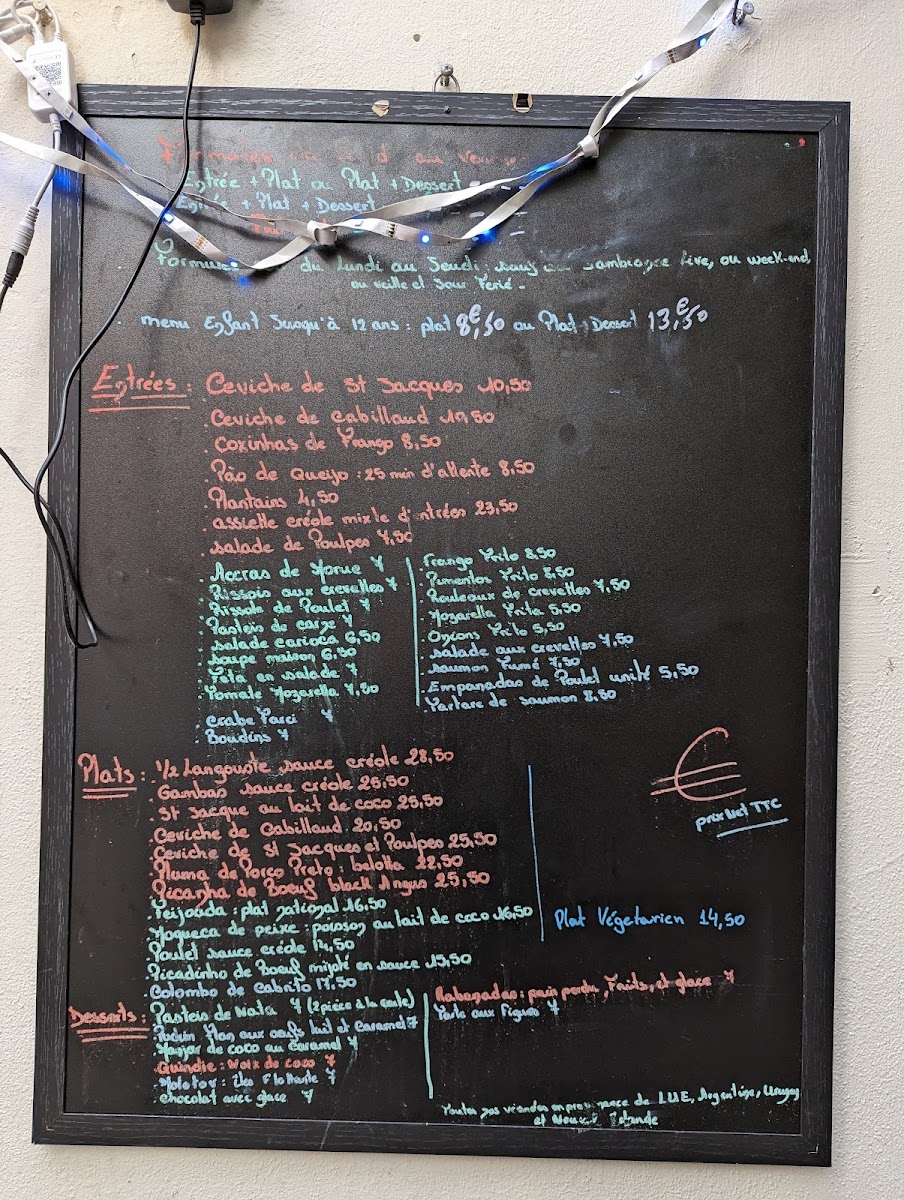 Formules
Entrée + Plat ou Plat + Dessert
Entrée + Plat + Dessert
Formules du Lundi au Jeudi sauf d'ambiance live, ou week-end,
ou veille et Jour Ferié.
menu Enfant Jusqu'à 12 ans : plat 8€,50 ou Plat + Dessert 13€,50
Entrées : Ceviche de St Jacques 10,50
. Ceviche de Cabillaud 10,50
. Coxinhas de Frango 8,50
. Pão de Queijo : 25 min d'attente 8,50
. Plantains 4,50
. assiette créole mixte d'entrées 23,50
. salade de Poulpes 7,50
. Accras de Morue 7
. Rissois aux crevettes 7
. Rissole de Poulet 7
. Pasteis de carne 7
. salade carioca 6,50
. soupe maison 6,50
. Feta en salade 7
. Tomate Mozarella 7,50
. Crabe Farci 7
. Boudins 7
. Frango Frito 8,50
. Pimentos Frito 8,50
. Rouleaux de crevettes 7,50
. Mozarella Frita 5,50
. Onions Frito 5,50
. salade aux crevettes 7,50
. saumon Fumé 7,50
. Empanadas de Poulet unité 5,50
. Tartare de saumon 8,50
Plats : 1/2 Langouste sauce créole 28,50
. Gambas sauce créole 26,50
. St Jacque au lait de coco 25,50
. Ceviche de Cabillaud 20,50
. Ceviche de St Jacques et Poulpes 25,50
. Pluma de Porco Preto : bellota 22,50
. Picanha de Boeuf black Angus 25,50
. Feijouda : plat national 16,50
. Moqueca de peixe : poisson au lait de coco 16,50
. Poulet sauce créole 14,50
. Picadinho de Boeuf mijoté en sauce 15,50
. Colombo de Cabrito 17,50
€
prix Net TTC
Plat Végetarien 14,50
Desserts : . Pasteis de Nata 7 (2 pièce à la carte)
. Pudim Flan aux oeufs lait et Caramel 7
. Manjar de coco au Caramel 7
. Quindie : Noix de coco 7
. Molotov : Iles Flottante 7
. Chocolat avec glace 7
Rabanadas : pain perdu, Fruits, et glace 7
Tarte aux Figues 7
Toutes nos viandes en provenance de L'UE, Argentine, Uruguay
et Nouvelle Zélande